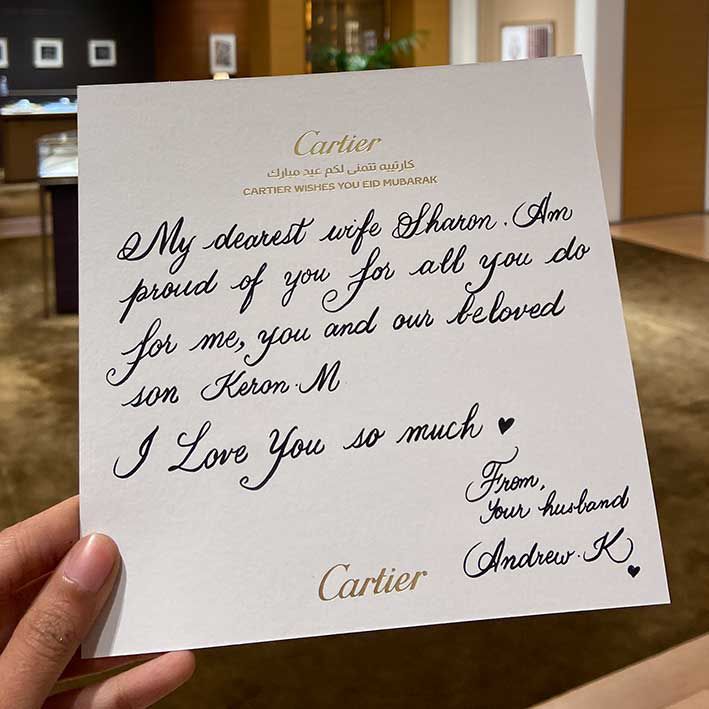 Cartier
كارتييه تتمنى لكم عيد مبارك
CARTIER WISHES YOU EID MUBARAK
My dearest wife Sharon. Am
proud of you for all you do
for me, you and our beloved
son Keron. M
I Love You so much ♥
From,
your husband
Andrew. K
♥
Cartier